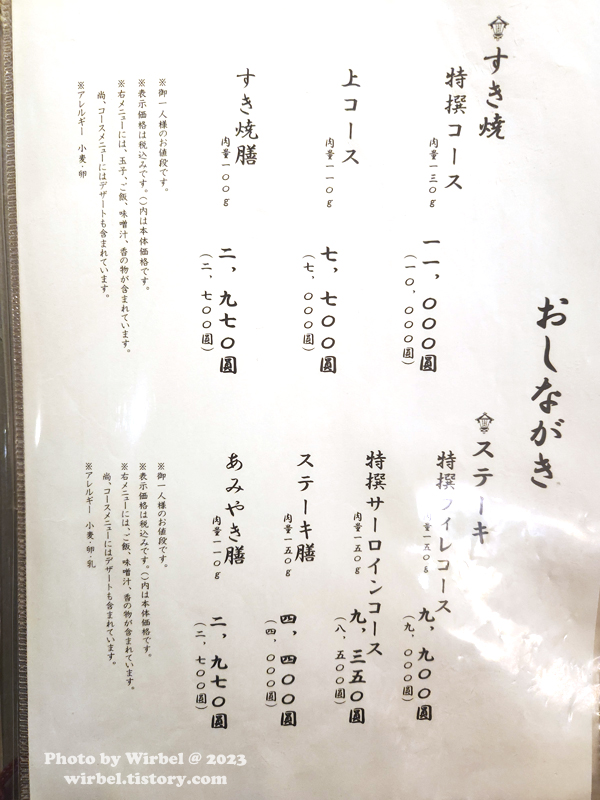 おしながき
すき焼
特撰コース
肉量一三〇g
一一,〇〇〇圓
(一〇,〇〇〇圓)
上コース
肉量一一〇g
七,七〇〇圓
(七,〇〇〇圓)
すき焼膳
肉量一〇〇g
二,九七〇圓
(二,七〇〇圓)
※御一人様のお値段です。
※表示価格は税込みです。()内は本体価格です。
※右メニューには、玉子、ご飯、味噌汁、香の物が含まれています。
尚、コースメニューにはデザートも含まれています。
※アレルギー 小麦・卵
ステーキ
特撰フィレコース
肉量一五〇g
九,九〇〇圓
(九,〇〇〇圓)
特撰サーロインコース
肉量一五〇g
九,三五〇圓
(八,五〇〇圓)
ステーキ膳
肉量一五〇g
四,四〇〇圓
(四,〇〇〇圓)
あみやき膳
肉量一一〇g
二,九七〇圓
(二,七〇〇圓)
※御一人様のお値段です。
※表示価格は税込みです。()内は本体価格です。
※右メニューには、ご飯、味噌汁、香の物が含まれています。
尚、コースメニューにはデザートも含まれています。
※アレルギー 小麦・卵・乳
Photo by Wirbel @ 2023
wirbel.tistory.com